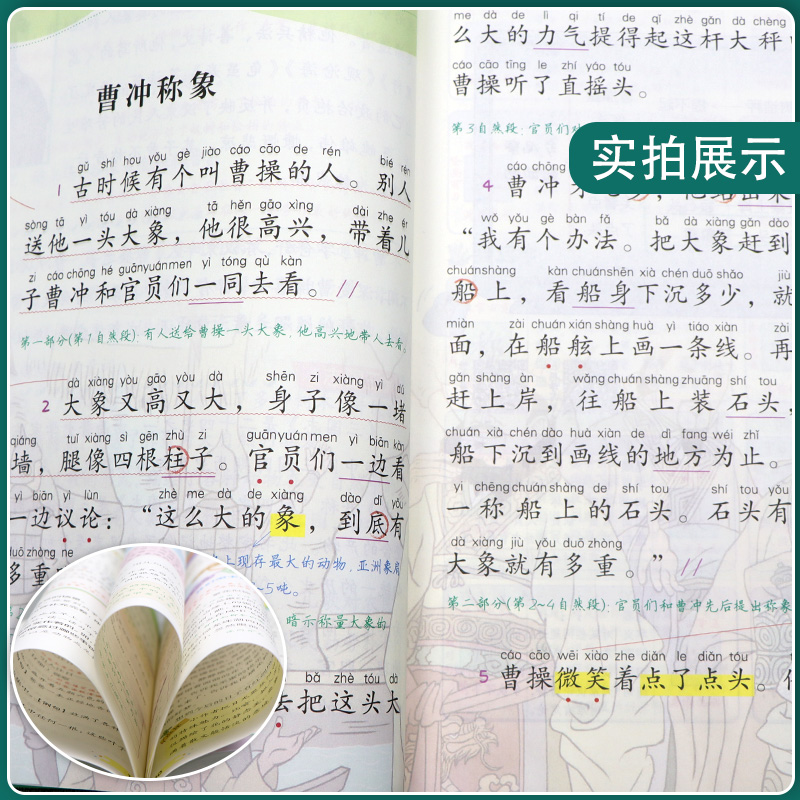 曹冲称象
gǔ shí hou yǒu gè jiào cáo cāo de rén bié rén
1 古时候有个叫曹操的人。别人
sòng tā yì tóu dà xiàng tā hěn gāo xìng dài zhe ér
送他一头大象，他很高兴，带着儿
zi cáo chōng hé guān yuán men yì tóng qù kàn
子曹冲和官员们一同去看。
第一部分(第1自然段)：有人送给曹操一头大象，他高兴地带人去看。
dà xiàng yòu gāo yòu dà shēn zi xiàng yì dǔ
2 大象又高又大，身子像一堵
qiáng tuǐ xiàng sì gēn zhù zi guān yuán men yì biān kàn
墙，腿像四根柱子。官员们一边看
yì biān yì lùn zhè me dà de xiàng dào dǐ yǒu
一边议论：“这么大的象，到底有
duō zhòng ne
多重
上现存最大的动物，亚洲象肩
~5吨。
暗示称量大象的
bǎ zhè tóu dà
去把这头大
me dà de lì qi tí de qǐ zhè gǎn dà chèng
么大的力气提得起这杆大秤
cáo cāo tīng le zhí yáo tóu
曹操听了直摇头。
第3自然段：官员们
实拍展示
cáo chōng
4 曹冲
wǒ yǒu gè bàn fǎ bǎ dà xiàng gǎn dào
“我有个办法。把大象赶到
chuán shàng kàn chuán shēn xià chén duō shǎo jiù
船上，看船身下沉多少，就
miàn zài chuán xián shàng huà yì tiáo xiàn zài
面，在船舷上画一条线。再
gǎn shàng àn wǎng chuán shàng zhuāng shí tou
赶上岸，往船上装石头，
chuán xià chén dào huà xiàn de dì fang wéi zhǐ
船下沉到画线的地方为止。
yì chēng chuán shàng de shí tou shí tou yǒu
一称船上的石头。石头有
dà xiàng jiù yǒu duō zhòng
大象就有多重。”
第二部分(第2~4自然段)：官员们和曹冲先后提出称象
cáo cāo wēi xiào zhe diǎn le diǎn tóu
5 曹操微笑着点了点头。